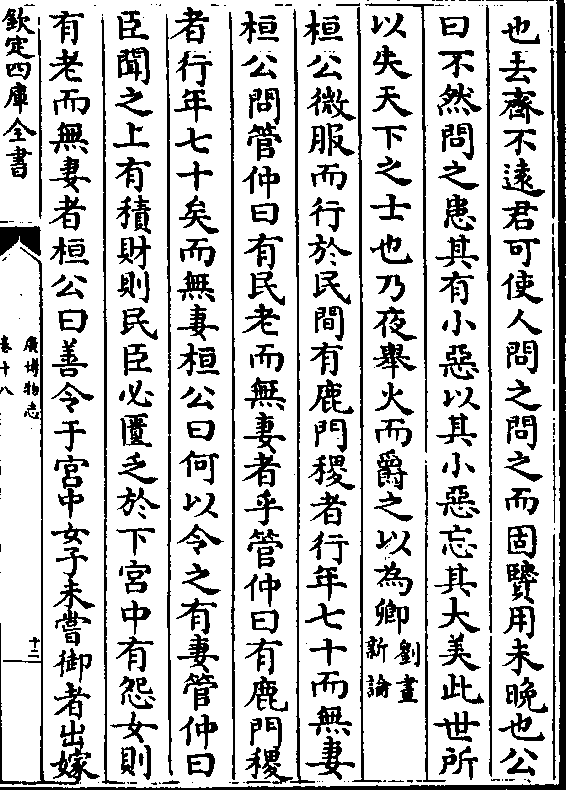 也去齊不遠君可使人問之問之而固賢用未晚也公
曰不然問之患其有小惡以其小惡忘其大美此世所
以失天下之士也乃夜舉火而爵之以為卿劉晝新論
桓公微服而行於民間有鹿門稷者行年七十而無妻
桓公問管仲曰有民老而無妻者乎管仲曰有鹿門稷
者行年七十矣而無妻桓公曰何以令之有妻管仲曰
臣聞之上有積財則民臣必匱乏於下宮中有怨女則
有老而無妻者桓公曰善令于宮中女子未嘗御者出嫁
欽定四庫全書
廣博物志
卷十八
十三